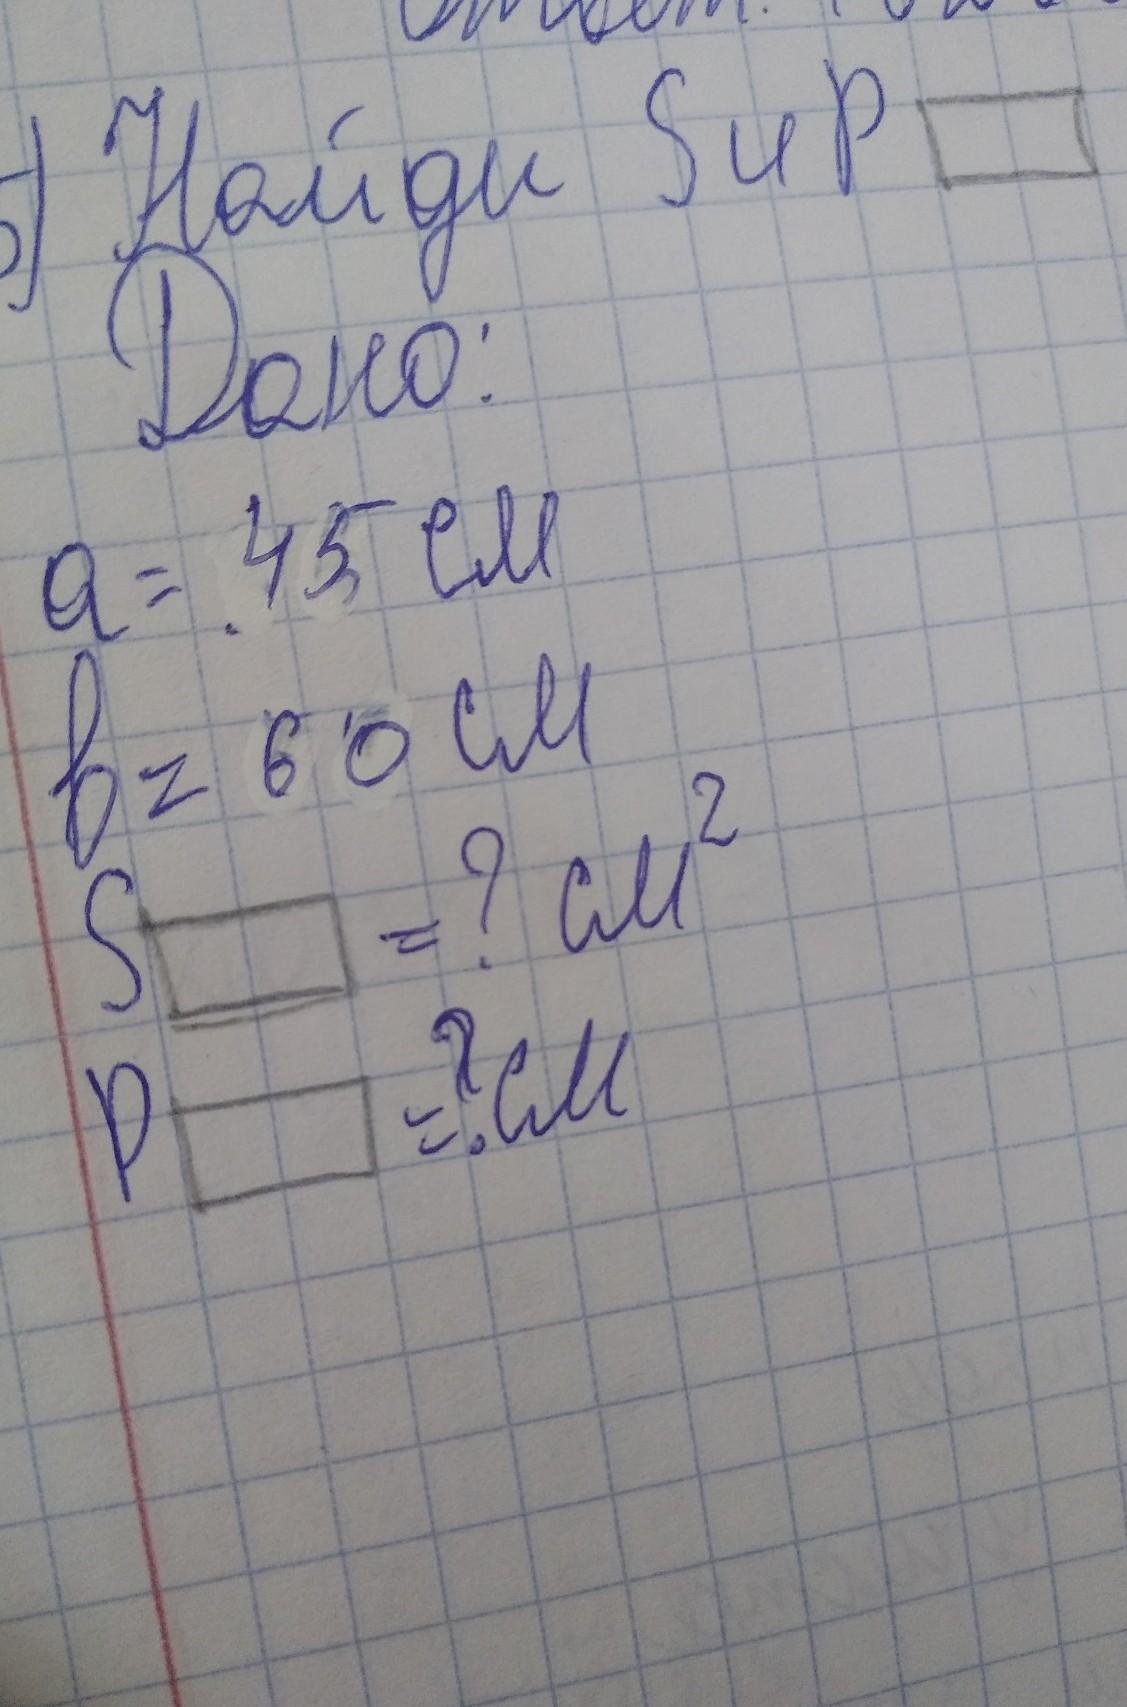 5) Найди S и P
Дано:
a = 45 см
b = 60 см
S = ? см²
P = ? см